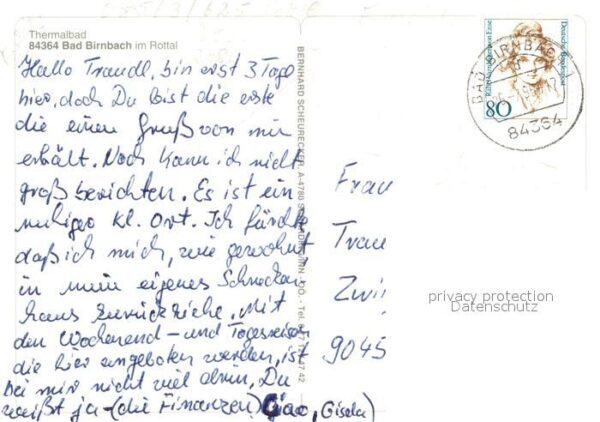 Thermalbad
84364 Bad Birnbach im Rottal
Hallo Traudl, bin erst 3 Tage
hier, doch Du bist die erste
die einen Gruß von mir
erhält. Noch kann ich nicht
groß berichten. Es ist ein
ruhiger kl. Ort. Ich fürchte
daß ich mich, wie gewohnt,
in mein eigenes Schnecken
haus zurückziehe. Mit
den Wochenend- und Tagesreisen
die hier angeboten werden, ist
bei mir nicht viel drin, Du
weißt ja - (die Finanzen) Ciao, Gisela
BERNHARD SCHEURECKER, A-4780
Deutsche Bundespost
80
BAD BIRNBACH
84364
Frau
Trau
Zwi
9045
privacy protection
Datenschutz